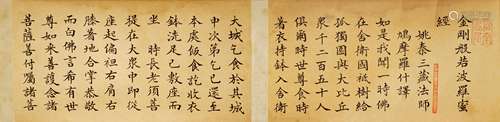 金剛般若波羅蜜
經
姚秦三藏法師
鳩摩羅什譯
如是我聞一時佛
在舍衛國祇樹給
孤獨園與大比丘
衆千二百五十人
俱爾時世尊食時
著衣持鉢入舍衛
大城乞食於其城
中次第乞已還至
本處飯食訖收衣
鉢洗足已敷座而
坐 時長老須菩
提在大衆中即從
座起偏袒右肩右
膝著地合掌恭敬
而白佛言希有世
尊如來善護念諸
菩薩善付囑諸善